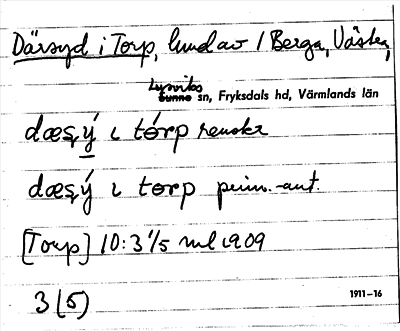 Därsyd i Torp, hmd av 1 Berga, Västra,
Lysviks
Sunne sn, Fryksdals hd, Värmlands län
dæsý ɩ tórp
dæsý ɩ tɵrp prim.-ant.
[Torp] 10:3 1/5 rul 1909
3 (5)
1911–16